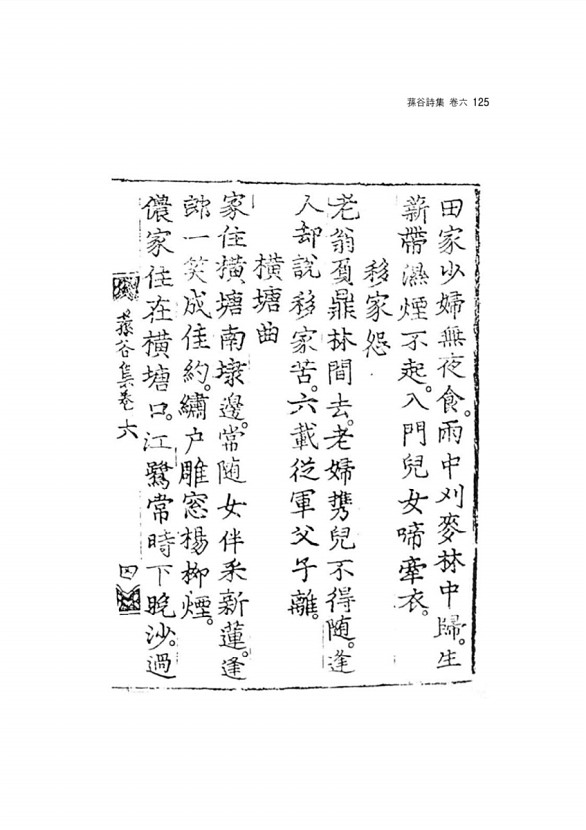 蓀谷詩集 卷六 125
田家少婦無夜食。雨中刈麥林中歸。生
薪帶濕煙不起。入門兒女啼牽衣。
移家怨
老翁負鼎林間去。老婦携兒不得随。逢
人却說移家苦。六載從軍父子離。
橫塘曲
家住橫塘南埭邊。常随女伴采新蓮。逢
郎一笑成佳約。繡户雕窓楊柳煙。
儂家住在橫塘口。江鷺常時下晚沙。過
蓀谷集卷六
四